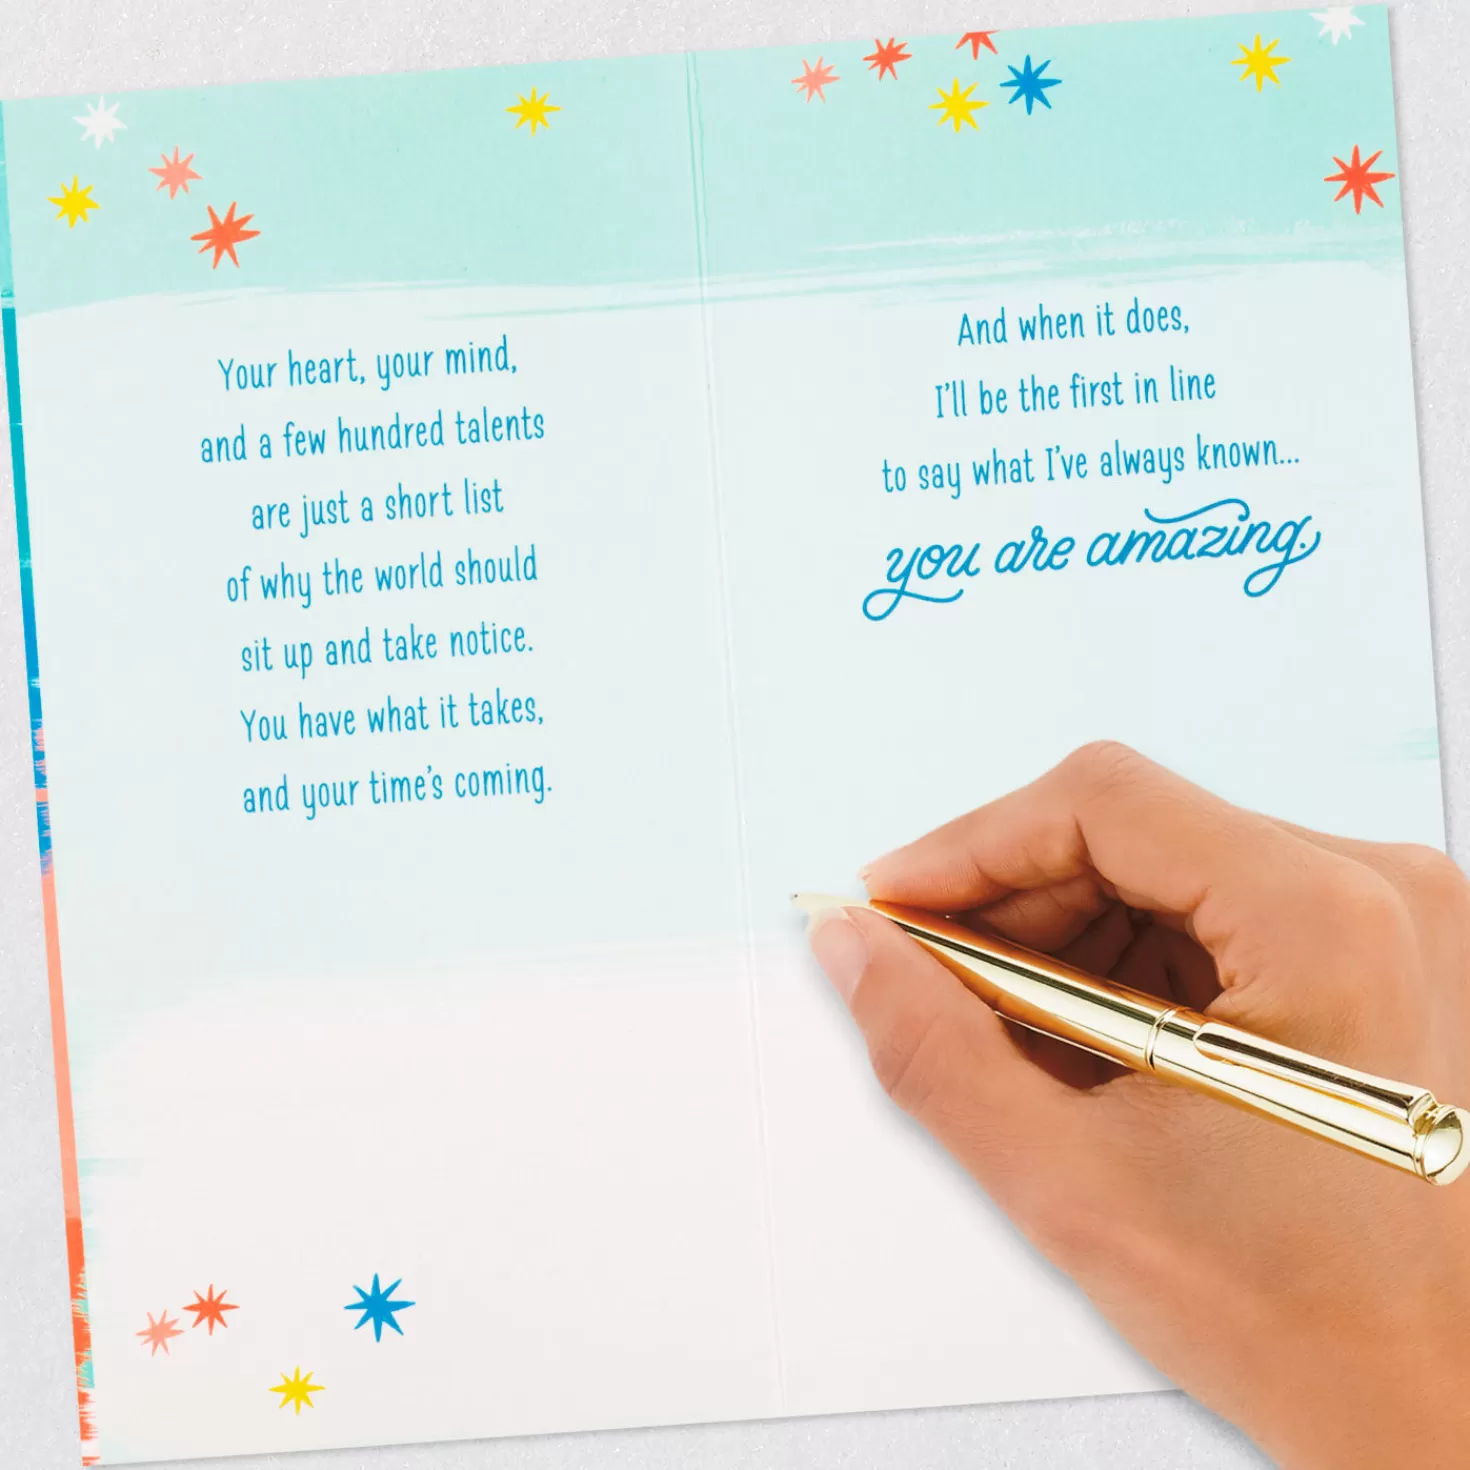 Your heart, your mind,
and a few hundred talents
are just a short list
of why the world should
sit up and take notice.
You have what it takes,
and your time's coming.
And when it does,
I'll be the first in line
to say what I've always known...
you are amazing.